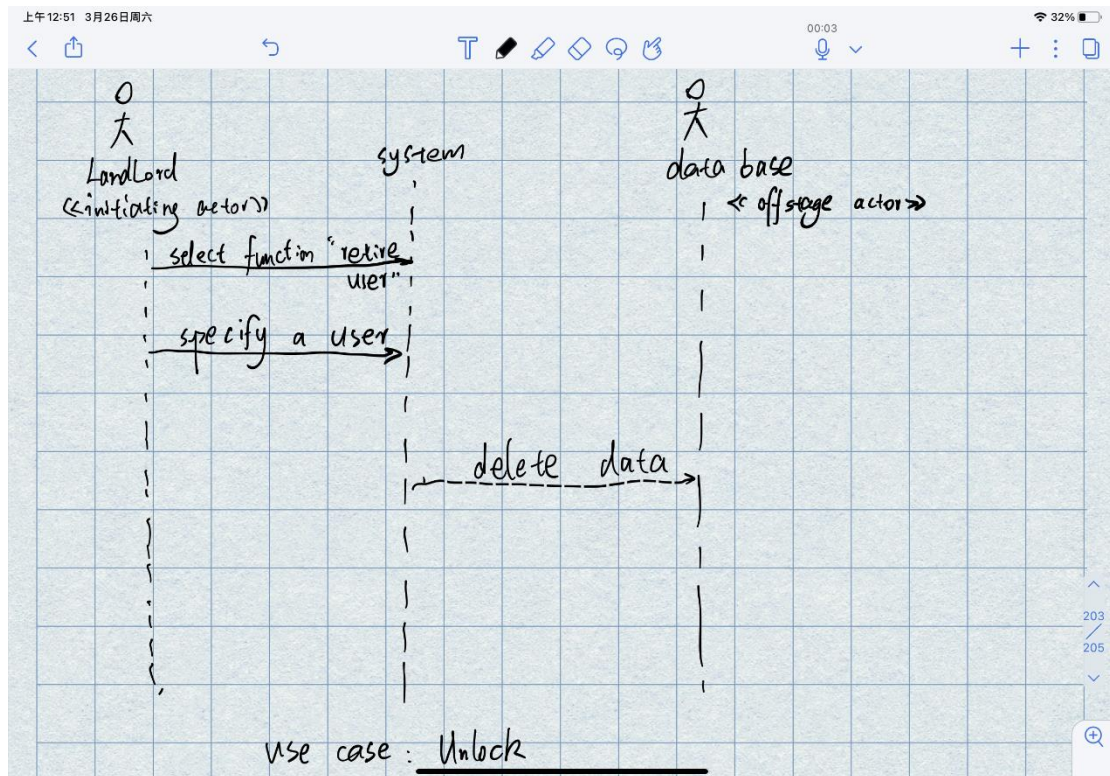 上午12:51 3月26日周六
32%
00:03
LandLord
<<initiating actor>>
system
data base
<< offstage actor >>
select function "retire
user"
specify a user
delete data
203
205
use case : Unlock